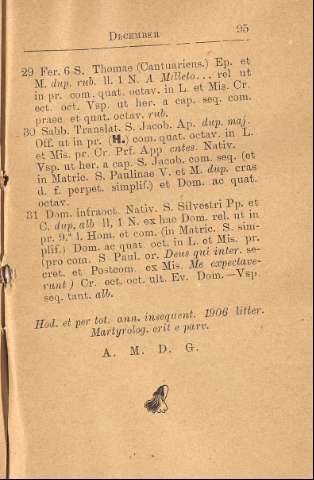 DECEMBER 95
29 Fer. 6 S. Thomae (Cantuariens.) Ep. et
M. dup. rub. ll. 1 N. A Mileto... rel ut
in pr. com. quat. octav. in L. et Mis. Cr.
ect. oct. Vsp. ut her. a cap. seq. com.
praec et quat. octav. rub.
30 Sabb. Translat. S. Jacob. Ap. dup. maj.
Off. ut in pr. (H.) com. quat. octav. in L.
et Mis. pr. Cr. Prf. App cntes. Nativ.
Vsp. ut her. a cap. S. Jacob. com. seq. (et
in Matric. S. Paulinae V. et M. dup. cras
d. f. perpet. simplif.) et Dom. ac quat.
octav.
31 Dom. infraoct. Nativ. S. Silvestri Pp. et
C. dup. alb ll, 1 N. ex hac Dom. rel. ut in
pr. 9.ª l. Hom. et com. (in Matric. S. sim-
plif.) Dom. ac quat. oct. in L. et Mis. pr.
(pro com. S Paul. or. Deus qui inter. se-
cret. et Postcom. ex Mis. Me expectave-
runt) Cr. ect. oct. ult. Ev. Dom.—Vsp.
seq. tant. alb.
Hod. et per tot. ann. insequent. 1906 litter.
Martyrolog. erit e parv.
A. M. D. G.